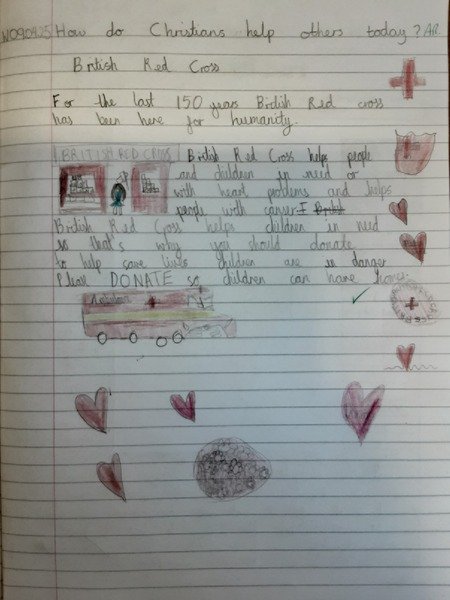 W090425 How do Christians help others today? AR
British Red Cross
For the last 150 years British Red cross
has been here for humanity.
BRITISH RED CROSS British Red Cross helps people
and children in need or
with heart problems and helps
people with cancer.
British Red Cross helps children in need
so that's why you should donate
to help save lives children are in danger
Please DONATE so children can have
Ambulance